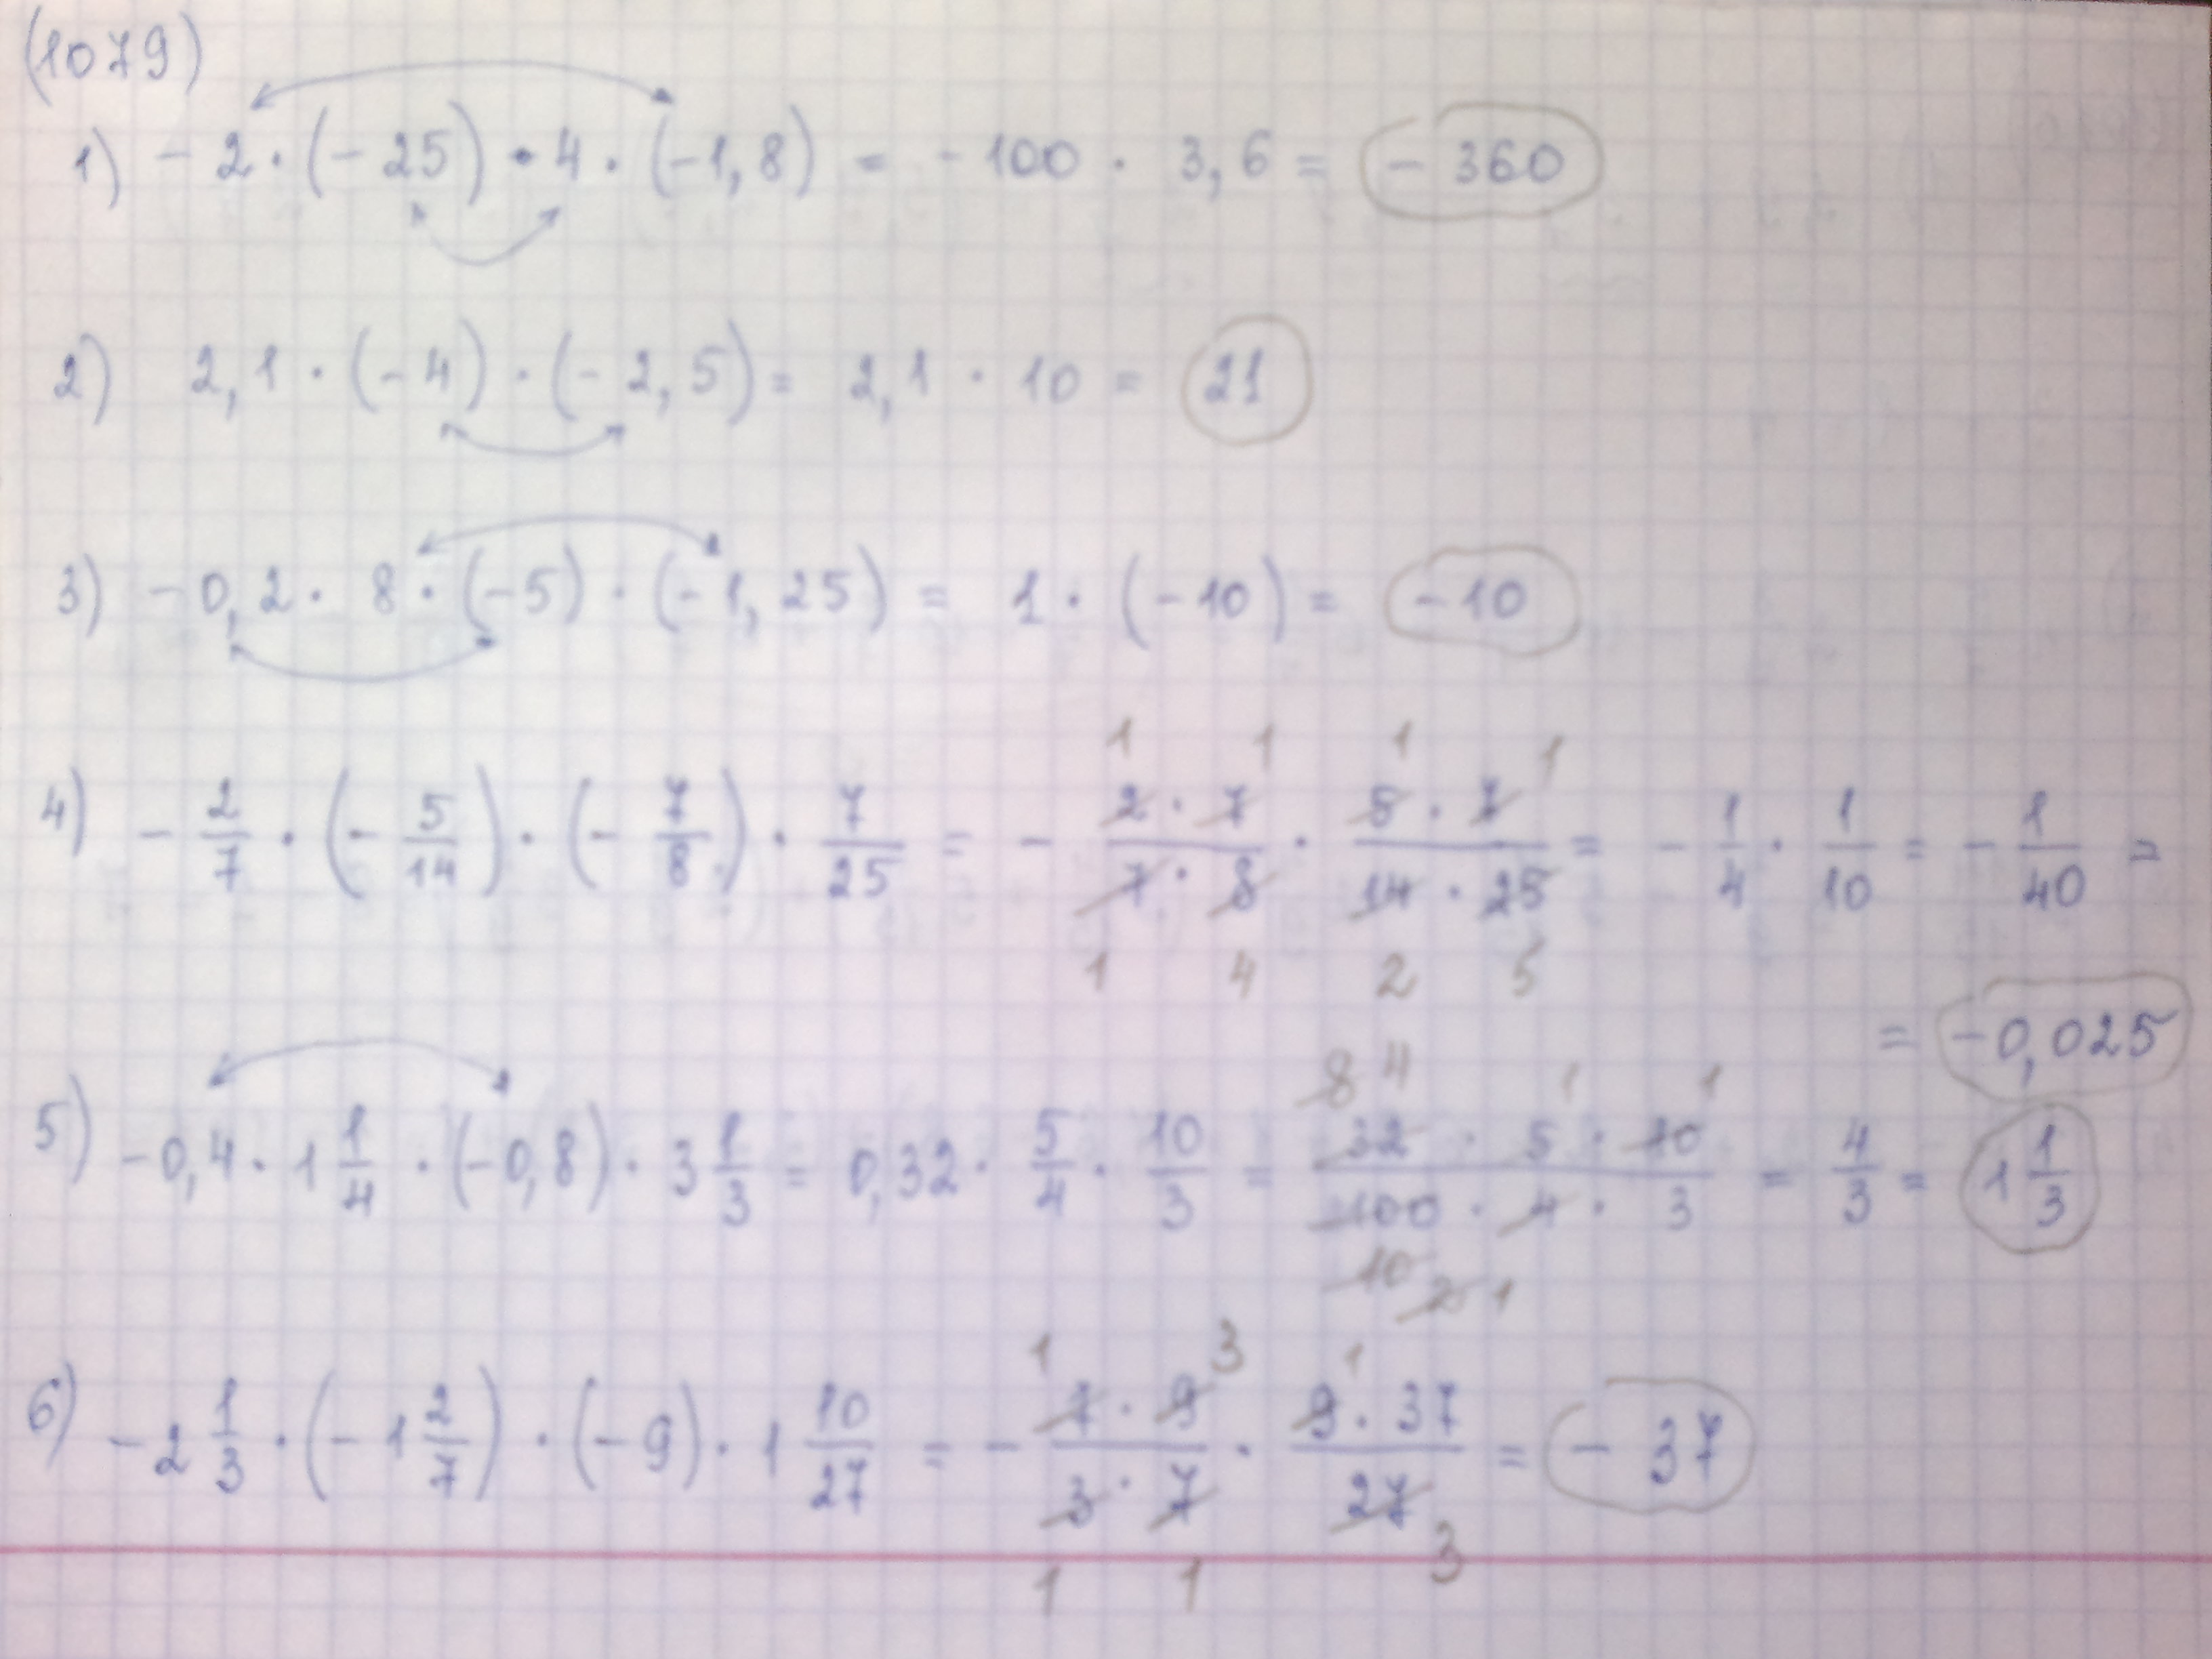 (1079)
1) -2·(-25)·4·(-1,8) = -100·3,6 = -360
2) 2,1·(-4)·(-2,5) = 2,1·10 = 21
3) -0,2·8·(-5)·(-1,25) = 1·(-10) = -10
1 1 1 1
4) -2/7·(-5/14)·(-7/8)·7/25 = -(2·7)/(7·8)·(5·7)/(14·25) = -1/4·1/10 = -1/40 =
1 4 2 5
= -0,025
8 4 1 1
5) -0,4·1 1/4·(-0,8)·3 1/3 = 0,32·5/4·10/3 = (32·5·10)/(100·4·3) = 4/3 = 1 1/3
10 2 1
1 3 1
6) -2 1/3·(-1 2/7)·(-9)·1 10/27 = -(7·9)/(3·7)·(9·37)/27 = -37
1 1 3